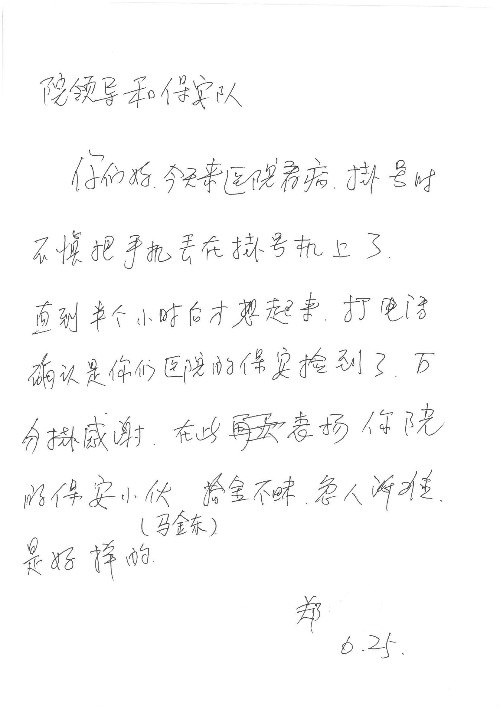 院领导和保安队
你们好.今天来医院看病.挂号时
不慎把手机丢在挂号机上了.
直到半个小时后才想起来.打电话
确认是你们医院的保安捡到了.万
分感谢.在此表扬你院
的保安小伙 拾金不昧.急人所难.
(马金东)
是好样的.
郑
6.25.